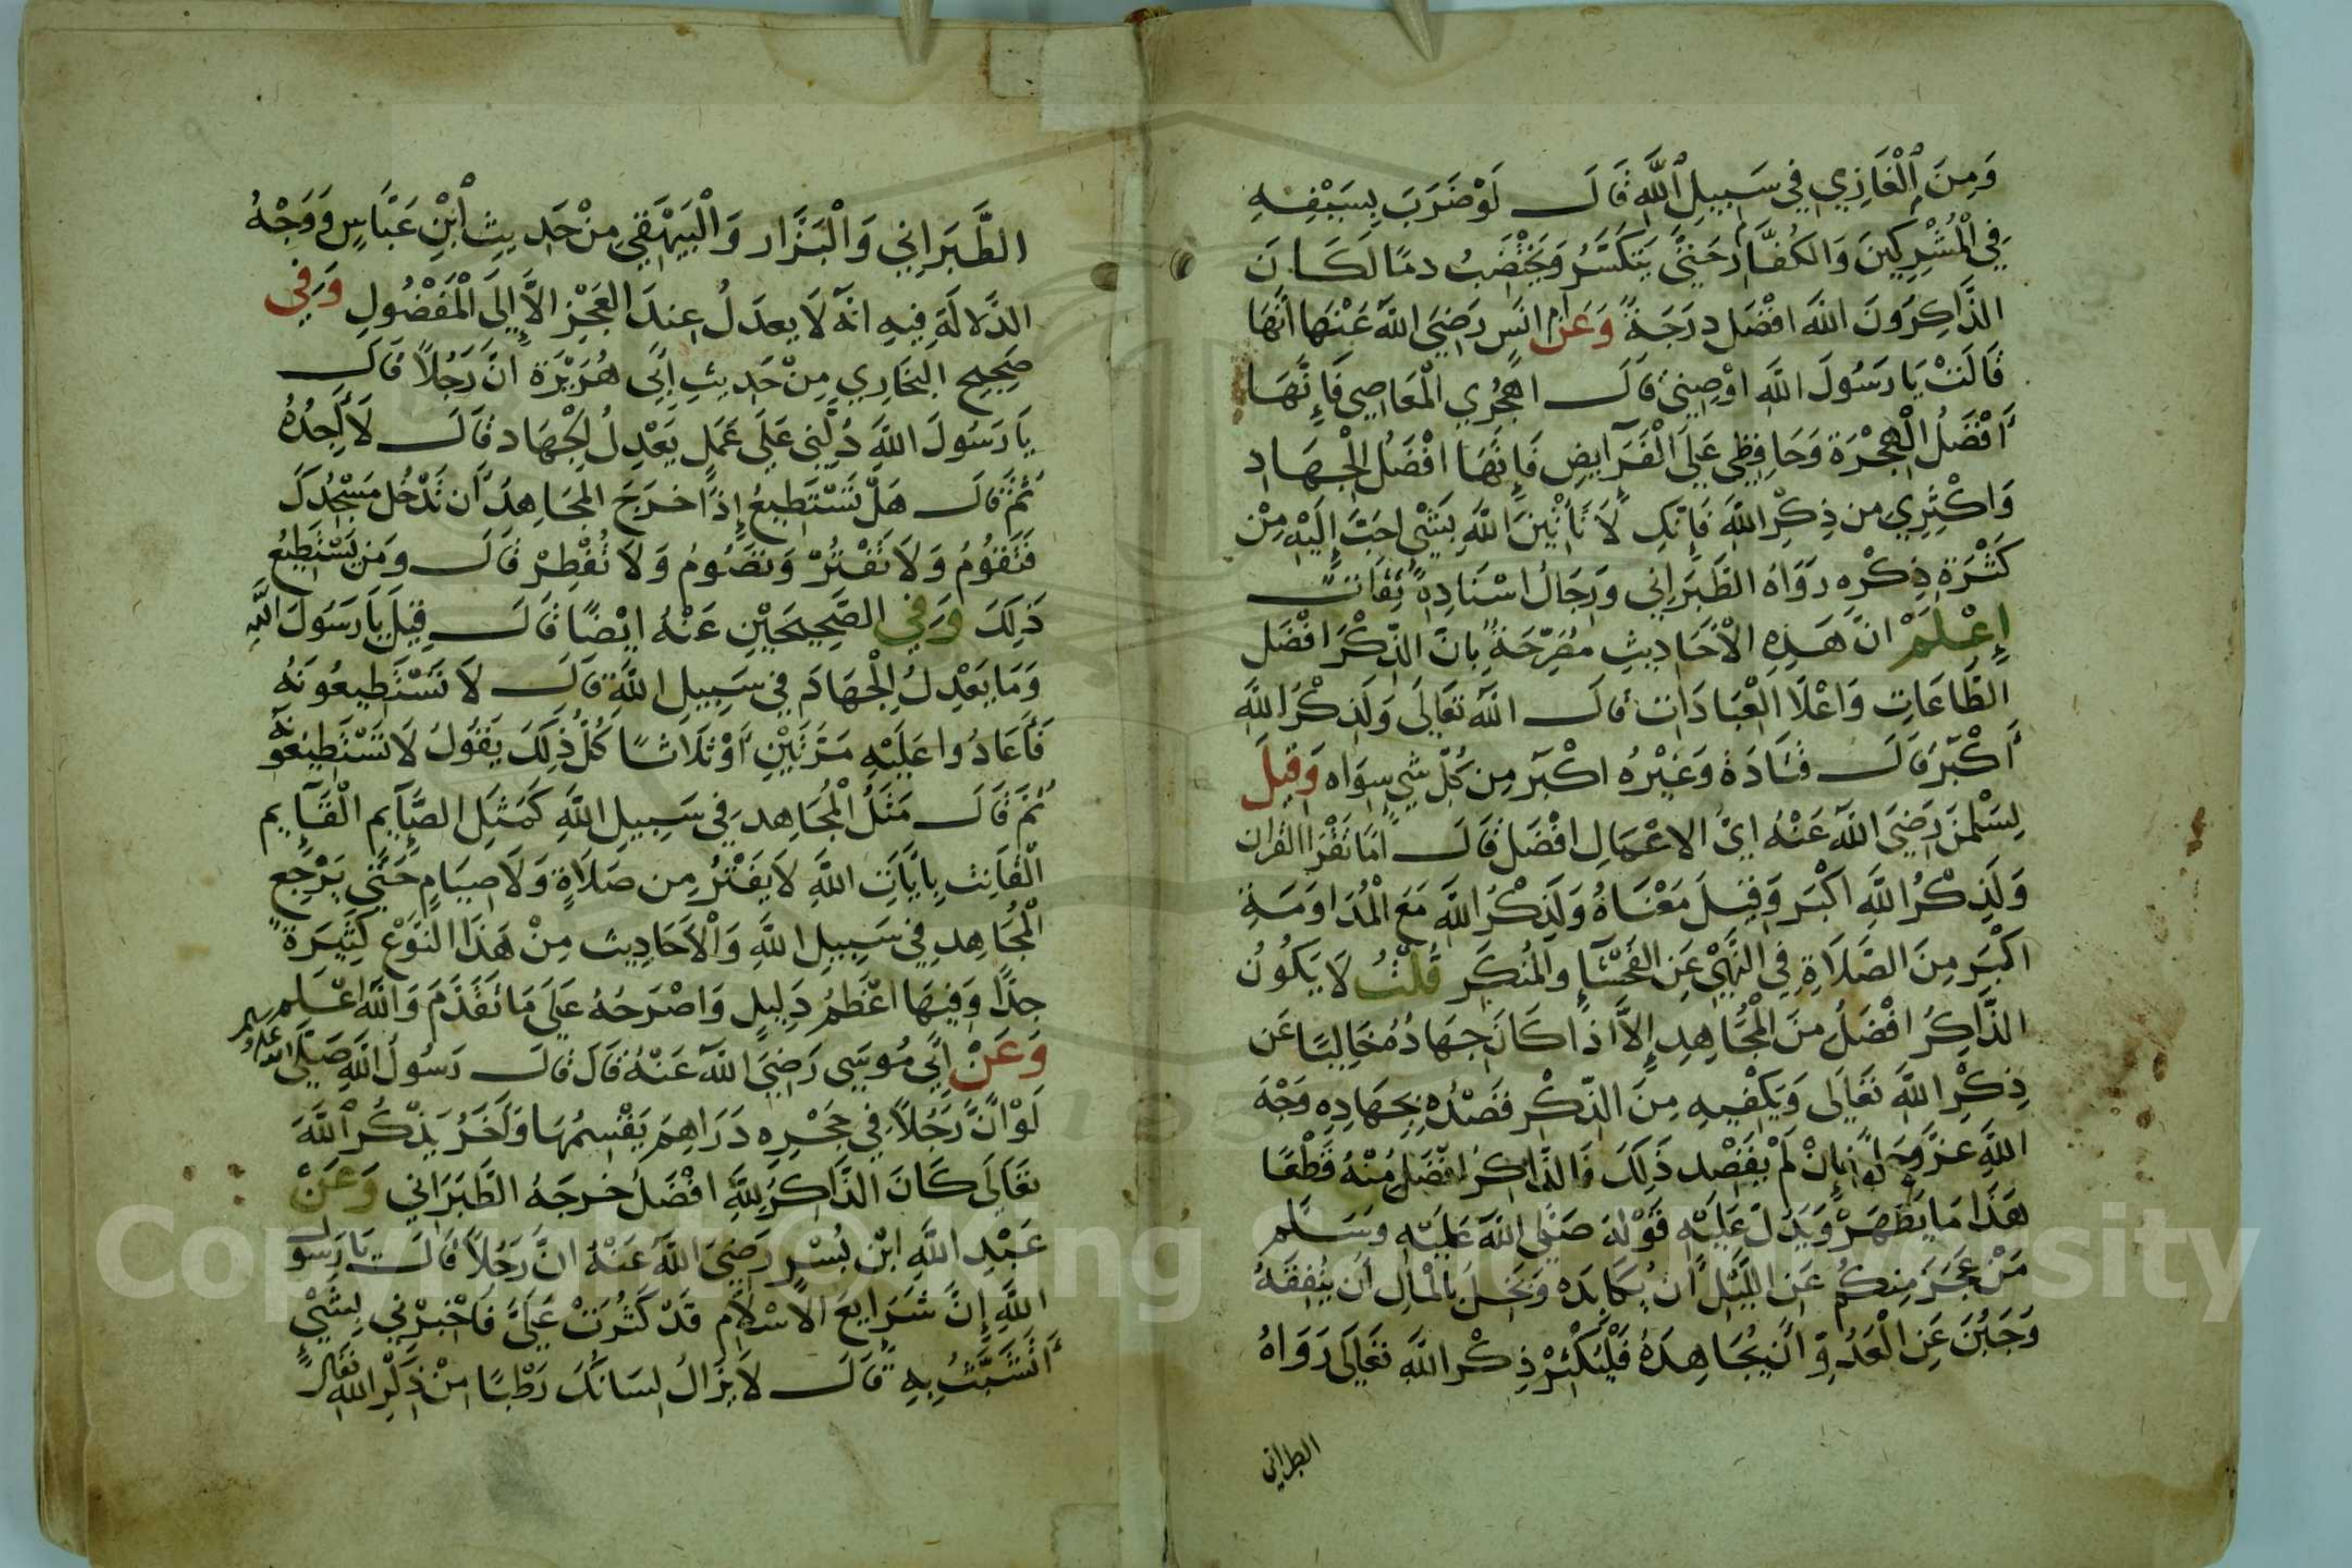 وَمِنَ ٱلْغَازِي فِي سَبِيلِ ٱللَّهِ قَالَ لَوْ ضَرَبَ بِسَيْفِهِ
فِي الْمُشْرِكِينَ وَالكُفَّارِ حَتَّى يَتَكَسَّرُ وَيَخْتَضِبُ دمًا لَكَانَ
الذَّاكِرُونَ اللَّهَ افْضَل دَرَجَةً وَعَنْ امِ انَسٍ رَضِيَ اللَّهُ عَنْهَا أَنَّهَا
قَالَتْ يَا رَسُولَ اللَّهِ اوْصِينِي قَالَ اهْجُرِي الْمَعَاصِي فَإِنَّهَا
أَفْضَلُ الْهِجْرَةِ وَحَافِظِي عَلَى الْفَرَايِضِ فَإِنَّهَا افْضَلُ الْجِهَادِ
وَاكْثِرِي من ذِكْرِ اللَّهِ فَإِنَّكِ لَا تَأْتِينَ اللَّهِ بِشَيْ احَبَّ إِلَيْهِ مِنْ
كَثْرَةِ ذِكْرِهِ رَوَاهُ الطَّبَرَانِي وَرِجَالُ اسْنَادِهِ ثِقَات
إِعْلَمْ انَّ هَذِهِ الْأَحَادِيثِ مُصَرِّحَةٌ بِانَّ الذِّكْرَ افْضَل
الطَّاعَاتِ وَاعْلَا الْعِبَادَاتِ قَالَ اللَّهُ تَعَالَى وَلَذِكْرُ اللَّهِ
أَكْبَرُ قَالَ قَتَادَةُ وَغَيْرُهُ اكْبَر مِن كُلِّ شَيٍ سِوَاه وَقِيلَ
لِسَلْمَنَ رَضِيَ اللَّهُ عَنْهُ ايُّ الاعْمَالِ افْضَل قَالَ امَا تَقْرَا القُرَان
وَلَذِكْرُ اللَّهِ اكْبَر وَقِيلَ مَعْنَاهُ وَلَذِكْرُ اللَّهِ مَعَ الْمُدَاوَمَةِ
اكْبَر مِنَ الصَّلَاةِ فِي النَّهْيِ عَنِ الفَحْشَآءِ وَالْمُنكَرِ قُلْتُ لَا يَكُونُ
الذَّاكِرُ افْضَلُ مِنَ الْمُجَاهِدِ إِلَّا اذَا كَانَ جِهَادُ مُخَالِيًا عَن
ذِكْرِ اللَّهِ تَعَالَى وَيَكْفِيهِ مِنَ الذِّكْرِ قَصْدُهُ بِجِهَادِهِ وَجْهَ
اللَّهِ عَزَّ وَجَلَّ فَإِنْ لَمْ يَقْصِد ذَلِكَ فَالذَّاكِرُ افْضَلُ مِنْهُ قَطْعًا
هَذَا مَا يَظْهَرُ وَيَدُلُّ عَلَيْهِ قَوْلَهُ صَلَّى اللَّهُ عَلَيْهِ وَسَلَّم
مَنْ عَجَزَ مِنكُم عَنِ اللَّيْلِ أَن يُكَابِدَهُ وَبَخِلَ بِالْمَالِ أَن يُنفِقَهُ
وَجَبُنَ عَنِ الْعَدُوِّ أَن يُجَاهِدَهُ فَلْيُكْثِرْ ذِكْرَ اللَّهِ تَعَالَى رَوَاهُ
الطبراني
الطَّبَرَانِي وَالْبَزَّار وَالْبَيْهَقِي مِنْ حَدِيثِ ٱبْنِ عَبَّاسٍ وَوَجْهُ
الدَّلَالَةِ فِيهِ انَّهُ لَا يعدَلُ عِندَ العَجْزِ الَّا إِلَى الْمَفْضُولِ وَفِي
صَحِيحِ البُخَارِي مِنْ حَدِيثِ أَبِي هُرَيْرَةَ انَّ رَجُلًا قَالَ
يَا رَسُولَ اللَّهِ دُلَّنِي عَلَى عَمَلٍ يَعْدِلُ الْجِهَاد قَالَ لَا أَجِدُهُ
ثُمَّ قَالَ هَلْ تَسْتَطِيعُ إِذَا خَرَجَ المُجَاهِدَ أَن تَدْخُلَ مَسْجِدَكَ
فَتَقُومُ وَلَا تَفْتُرْ وَتَصُومُ وَلَا تُفْطِرْ قَالَ وَمَن يَسْتَطِيعُ
ذَلِكَ وَفِي الصَّحِيحَيْنِ عَنْهُ ايْضًا قَالَ قِيلَ يَا رَسُولَ اللَّهِ
وَمَا يَعْدِلُ الْجِهَادَ فِي سَبِيلِ اللَّهِ قَالَ لَا تَسْتَطِيعُونَهُ
فَأَعَادُوا عَلَيْهِ مَرَّتَيْنِ أَوْ ثَلَاثًا كُلُّ ذَلِكَ يَقُولُ لَا تَسْتَطِيعُونَهُ
ثُمَّ قَالَ مَثَلُ الْمُجَاهِدِ فِي سَبِيلِ اللَّهِ كَمَثَلِ الصَّآيِمِ الْقَآيِمِ
الْقَانِت بِايَاتِ اللَّهِ لَا يَفْتُرُ مِن صَلَاةٍ وَلَا صِيَامٍ حَتَّى يَرْجِعَ
الْمُجَاهِد فِي سَبِيلِ اللَّهِ وَالْأَحَادِيثِ مِنْ هَذَا النَّوْعِ كَثِيرَةٌ
جِدًّا وَفِيهَا اعْظَمُ دَلِيلٍ وَاصْرَحُهُ عَلَى مَا تَقَدَّمَ وَاللَّهُ اعْلَم
وَعَنْ ابِي مُوسَى رَضِيَ اللَّهُ عَنْهُ قَالَ قَالَ رَسُولُ اللَّهِ صَلَّى الله عليه وسلم
لَوْ انَّ رَجُلًا فِي حَجْرِهِ دَرَاهِمَ يَقْسِمُهَا وَآخَرُ يَذْكُرُ اللَّهَ
تَعَالَى كَانَ الذَّاكِرُ لِلَّهِ افْضَلُ خرجَهُ الطَّبَرَانِي وَعَنْ
عَبْدِ اللَّهِ ابْنِ بُسْرٍ رَضِيَ اللَّهُ عَنْهُ انَّ رَجُلًا قَالَ يَا رَسُول
اللَّهِ إِنَّ شَرَايِعَ الْاسْلَامِ قَدْ كَثُرَتْ عَلَيَّ فَاخْبِرْنِي بِشَيْءٍ
أَتَشَبَّثُ بِهِ قَالَ لَا يَزَالُ لِسَانُكَ رَطْبًا مِنْ ذِكْرِ اللَّهِ تَعَالَى
Copyright © King Saud University